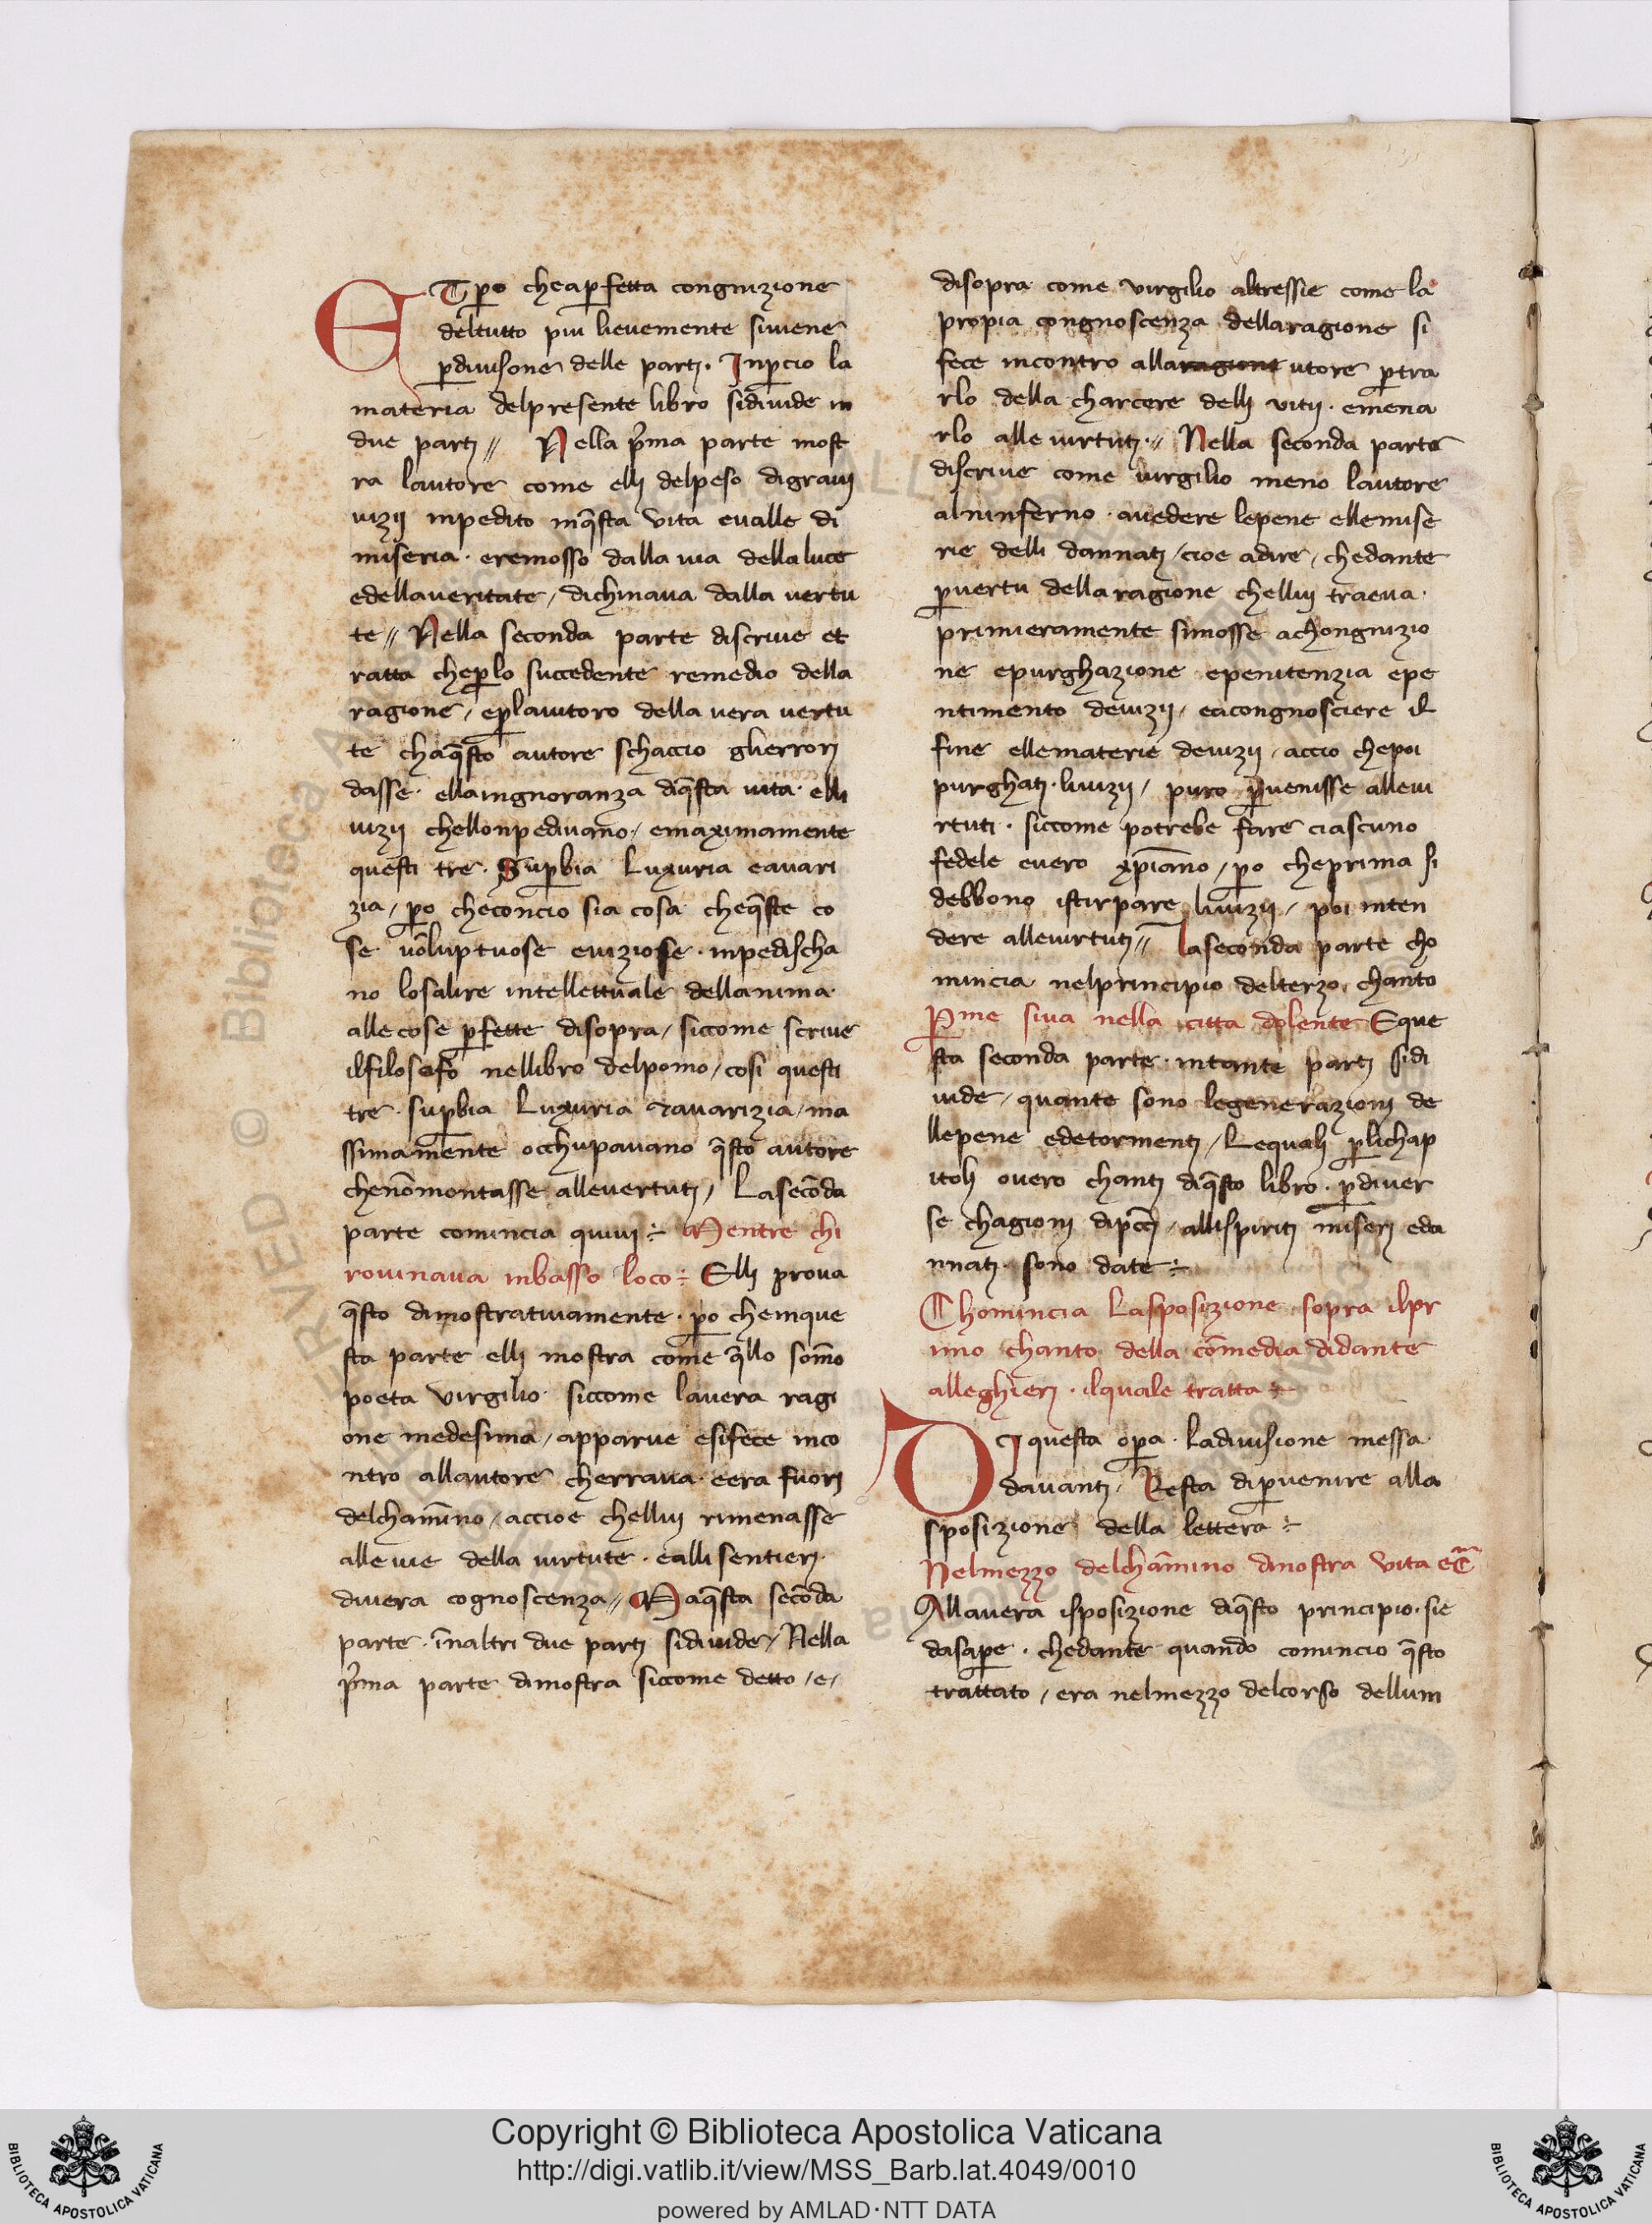 ET ꝑo cheaꝑfetta congnizione
deltutto piu lievemente siviene
ꝑdivisone delle parti. Inꝑcio la
materia delpresente libro sidivide in
due parti // Nella p̄ma parte most
ra lautore come elli delpeso digravi
vizij inpedito inq̄sta vita evalle di
miseria · eremosso dalla via dellaluce
edellaveritate / dichinava dalla vertu
te // Nella seconda parte discrive et
ratta cheꝑlo succedente remedio della
ragione / eꝑlaiutoro della vera vertu
te chaq̄sto autore schaccio glierrori
dasse · ellaingnoranza diq̄sta vita · elli
vizij chellonpedivano / emaximamente
questi tre · Suꝑbia Luxuria eavari
zia / ꝑo checoncio sia cosa cheq̄ste co
se vōluptuose eviziose · inpedischa
no losalire intellettuale dellanima
allecose ꝑfette disopra / siccome scrive
ilfilosofo nellibro delpomo / cosi questi
tre · suꝑbia Luxuria ⁊avarizia / ma
ssimamente occhupavano q̄sto autore
chenōmontasse allevertuti / Lasecōda
parte comincia quivi ÷ Mentre chi
rovinava inbasso loco ÷ Elli prova
q̄sto dimostrativamente · ꝑo cheinque
sta parte elli mostra come q̄llo som̄o
poeta virgilio siccome lavera ragi
one medesima / apparve esifece inco
ntro allautore cherrava · eera fuori
delchamīno / accioe chellui rimenasse
alle vie della virtute · ealli sentieri ·
divera cognoscenza // Maq̄sta secōda
parte · inn̄altri due parti sidivide / Nella
p̄ma parte dimostra siccome detto / e /
disopra come virgilio altressie come la
propia congnoscenza dellaragione si
fece incontro allaragione utore ꝑtra
rlo della charcere delli vitij · emena
rlo alle virtuti · // Nella seconda parte
discrive come virgilio meno lautore
alninferno · avedere lepene ellemise
rie delli dannati / cioe adire / chedante
ꝑvertu dellaragione chellui traeva ·
primieramente simosse achongnizio
ne epurghazione epenitenzia epe
ntimento devizij / eacongnosciere il
fine ellematerie devizij / accio chepoi
purghati · livizij / puro ꝑvenisse allevi
rtuti · siccome potrebe fare ciascuno
fedele evero xp̄iano / ꝑo cheprima si
debbono istirpare livizij / poi inten
dere allevirtuti // Laseconda parte cho
mincia nelprincipio delterzo chanto
Ꝑme siva nella citta dolente Eque
sta seconda parte · intante parti sidi
vide / quante sono legenerazioni de
llepene edetormenti / Lequali ꝑlichap
itoli overo chanti diq̄sto libro · ꝑdiver
se chagioni dipc̄ci / allispiriti miseri eda
nnati · sono date ÷
Chomincia Lasposizione sopra ilpr
imo chanto della com̄edia didante
alleghieri · ilquale tratta ÷
DI questa oꝑa · ladivisione messa
davanti / Resta diꝑvenire alla
sposizione della lettera ÷
Nelmezzo delcham̄ino dinostra vita etc̄
Allavera isposizione diq̄sto principio · sie
dasaꝑe · chedante quando comincio q̄sto
trattato / era nelmezzo delcorso dellum
Copyright © Biblioteca Apostolica Vaticana
http://digi.vatlib.it/view/MSS_Barb.lat.4049/0010
powered by AMLAD·NTT DATA
BIBLIOTECA APOSTOLICA VATICANA
BIBLIOTECA APOSTOLICA VATICANA